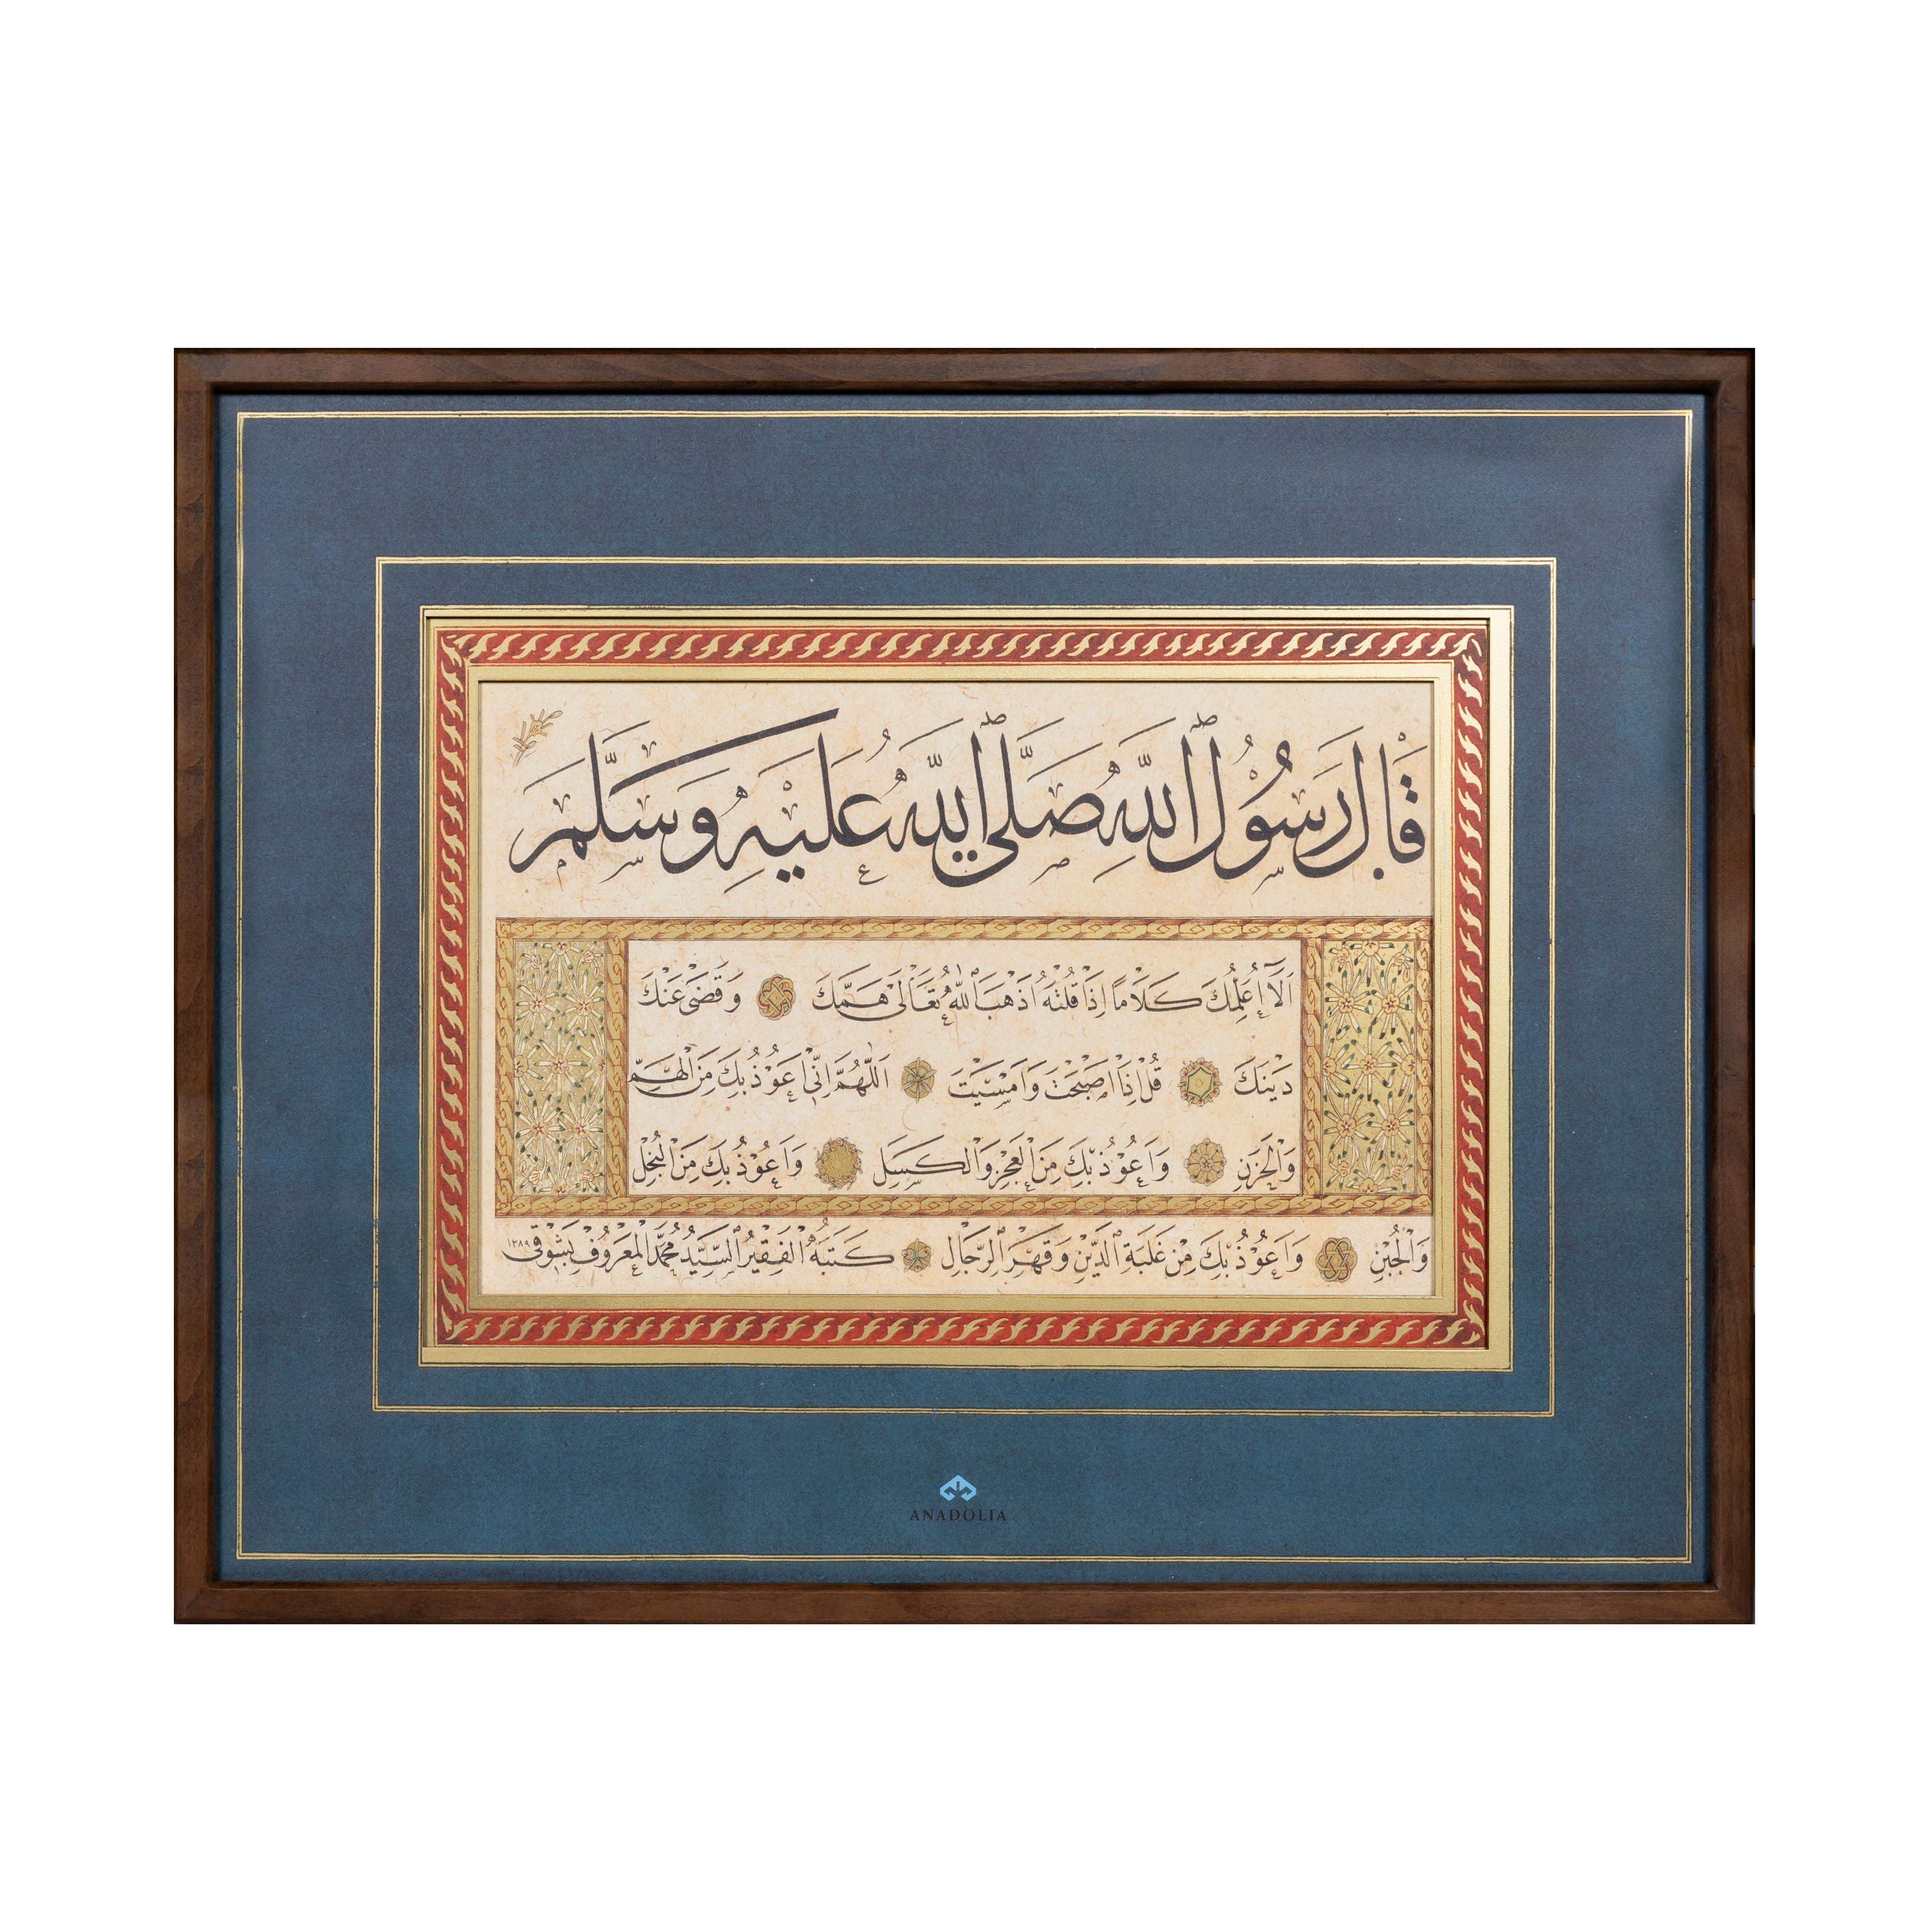 قَالَ رَسُولُ اللّٰهِ صَلَّى اللّٰهُ عَلَيْهِ وَسَلَّمَ
اَلَا اُعَلِّمُكَ كَلَامًا اِذَا قُلْتَهُ اَذْهَبَ اللّٰهُ تَعَالٰى هَمَّكَ وَقَضٰى عَنْكَ
دَيْنَكَ قُلْ اِذَا اَصْبَحْتَ وَاَمْسَيْتَ اَللّٰهُمَّ اِنّٖى اَعُوْذُ بِكَ مِنَ الْهَمِّ
وَالْحَزَنِ وَاَعُوْذُ بِكَ مِنَ الْعَجْزِ وَالْكَسَلِ وَاَعُوْذُ بِكَ مِنَ الْبُخْلِ
وَالْجُبْنِ وَاَعُوْذُ بِكَ مِنْ غَلَبَةِ الدَّيْنِ وَقَهْرِ الرِّجَالِ كَتَبَهُ الْفَقِيْرُ السَّيِّدُ مُحَمَّدُ الْمَعْرُوْفُ بِشَوْقِى ١٢٨٩
ANADOLIA